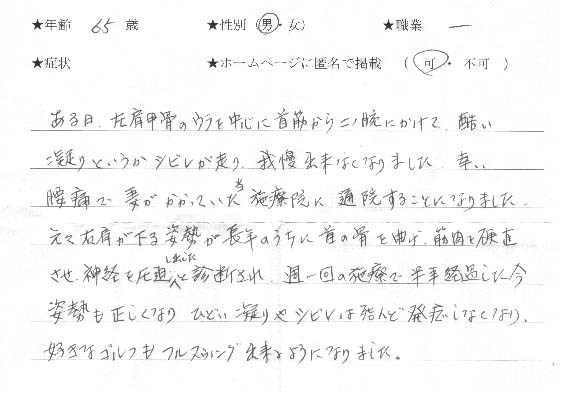 ★年齢 65 歳 ★性別(男・女) ★職業 ー
★症状 ★ホームページに匿名で掲載 (可・不可)
ある日、左肩甲骨のウラを中心に首筋から二ノ腕にかけて、酷い
凝りというかシビレが走り、我慢出来なくなりました。幸い
腰痛で妻がかかっていた当施療院に通院することになりました。
元々右肩が下る姿勢が長年のうちに首の骨を曲げ、筋肉を硬直
させ、神経を圧迫したと診断され、週一回の施療で半年経過した今
姿勢も正しくなり ひどい凝りやシビレは殆んど発症しなくなり、
好きなゴルフもフルスウィング出来るようになりました。